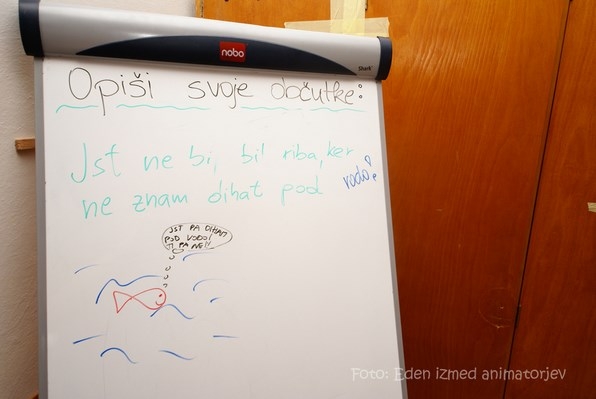 nobo
Shark
Opiši svoje občutke:
Jst ne bi bil riba, ker
ne znam dihat pod vodo!
JST PA DIHAM
POD VODO!
TI PA NE!!
Foto: Eden izmed animatorjev